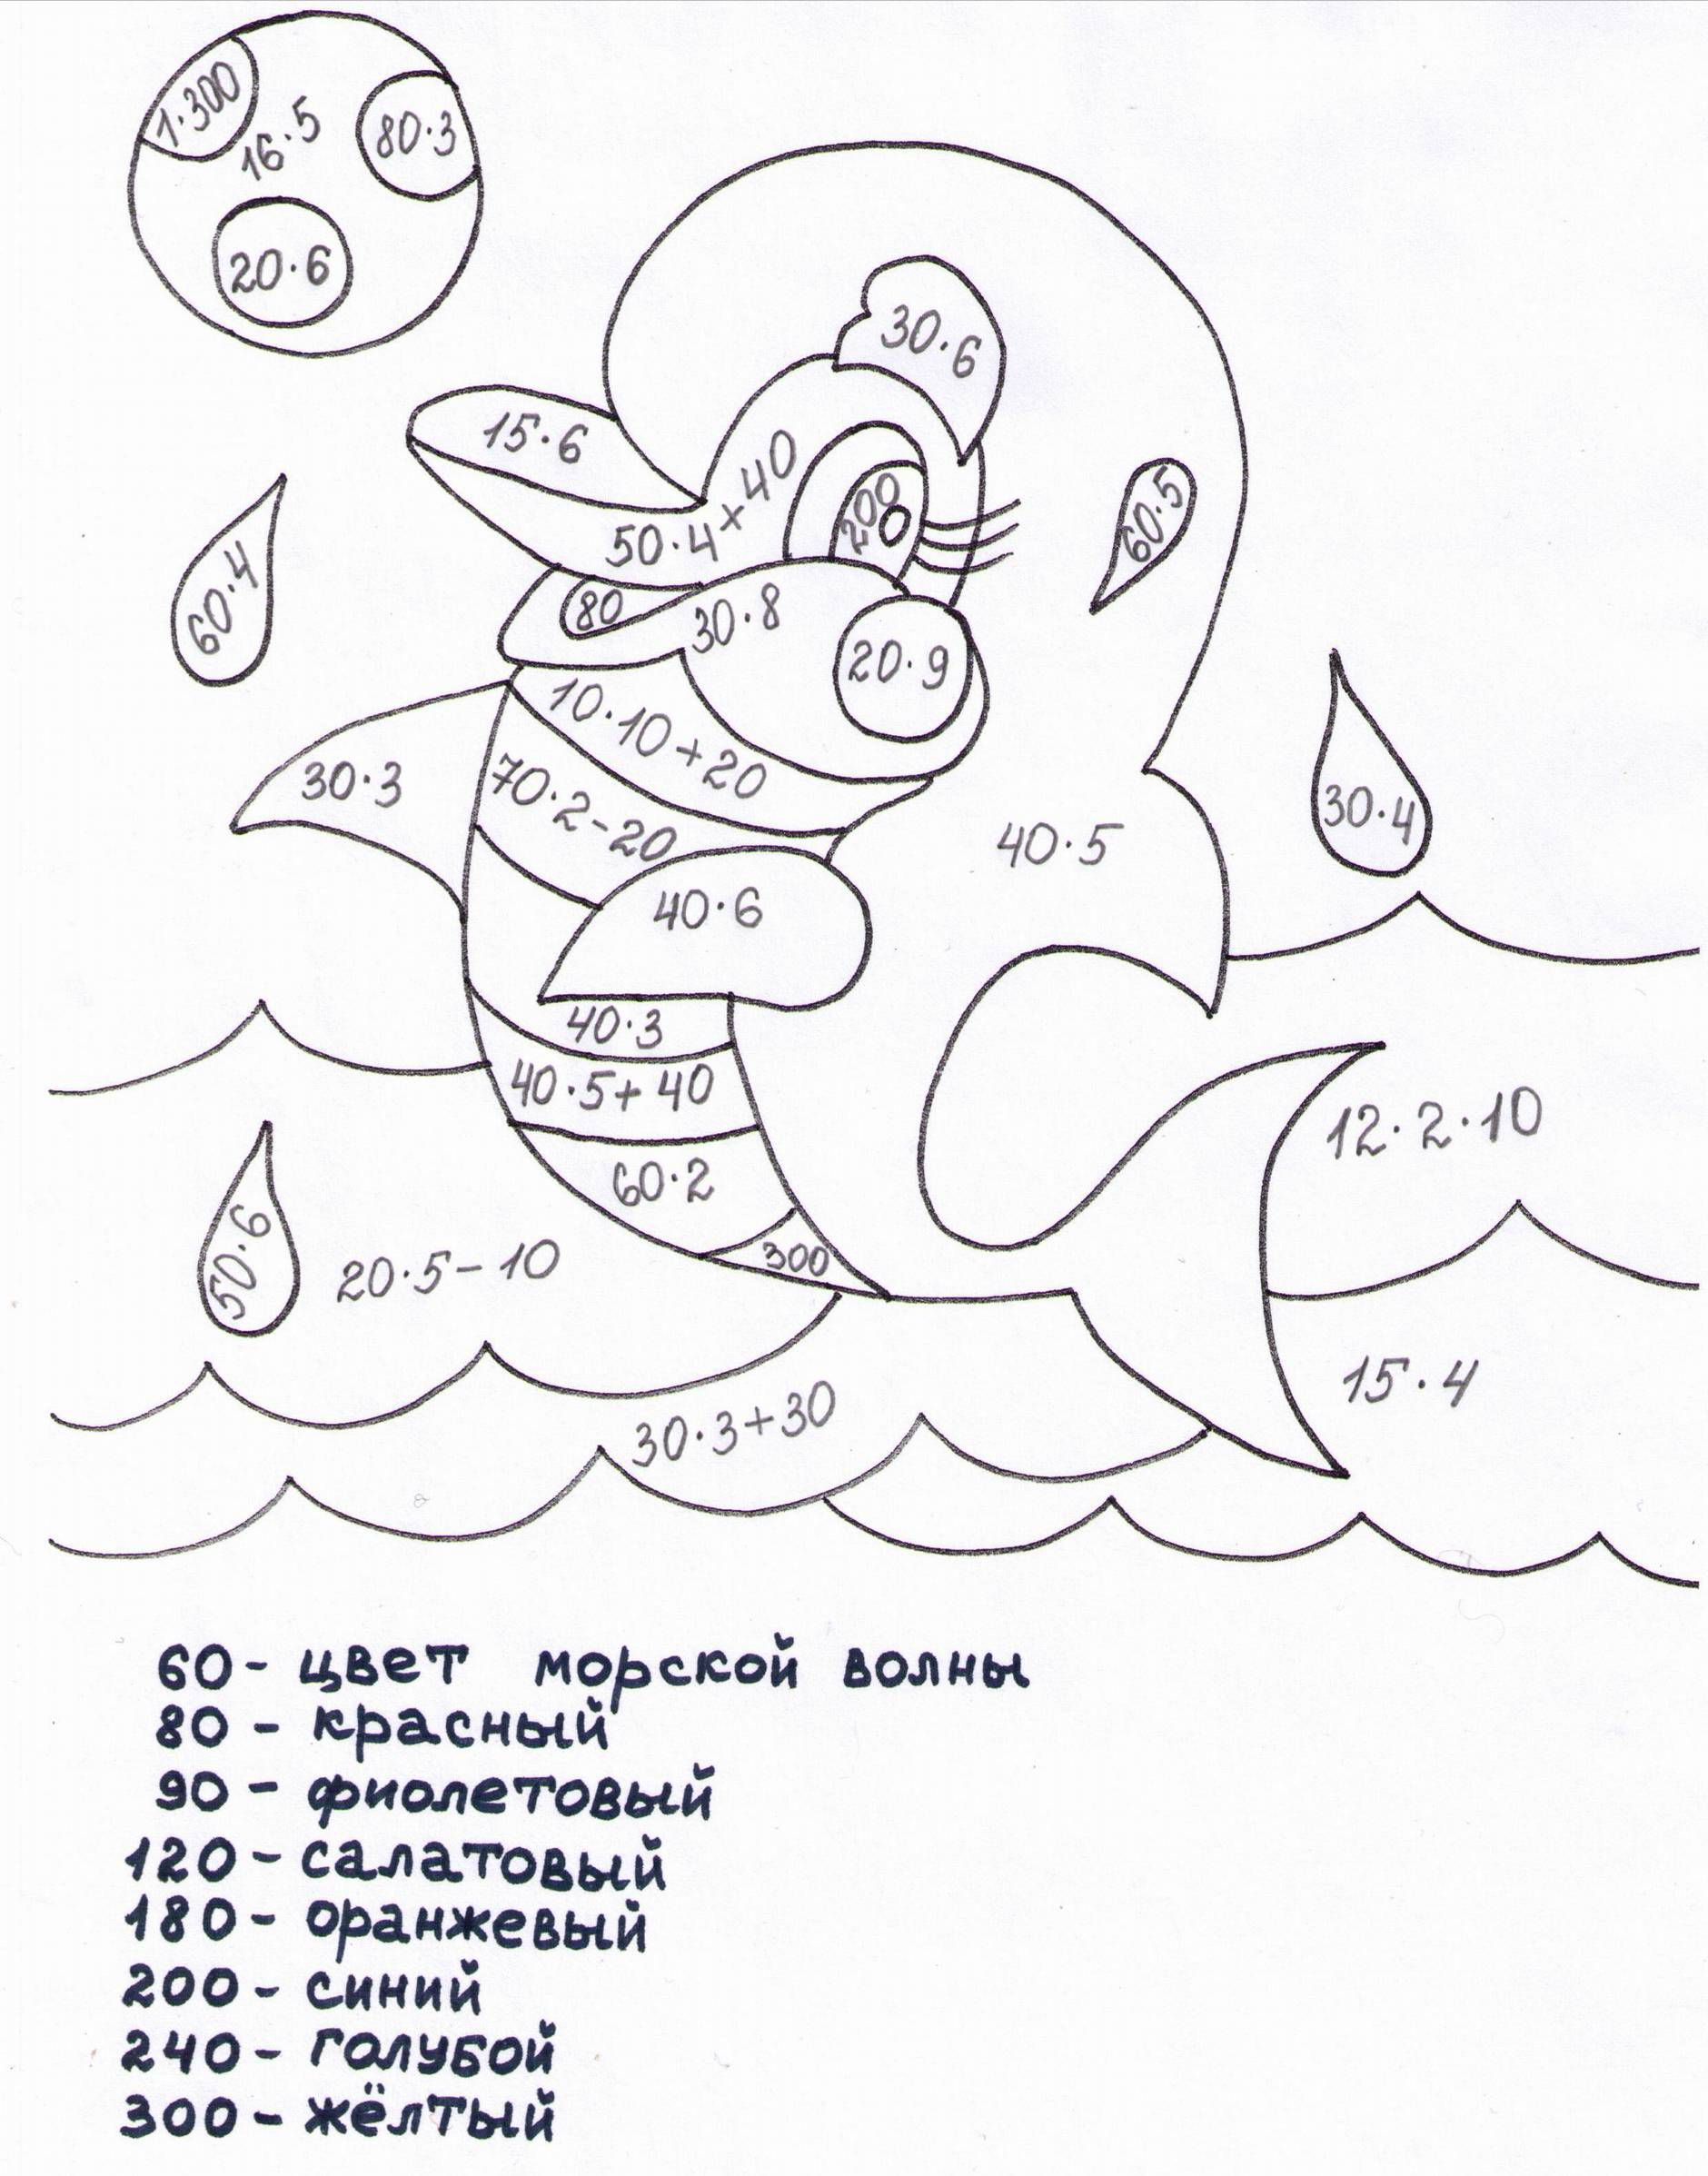 1·300
16·5
80·3
20·6
30·6
15·6
50·4+40
200
60·5
60·4
80
30·8
20·9
10·10+20
30·3
70·2-20
30·4
40·5
40·6
40·3
40·5+40
12·2·10
60·2
50·6
20·5-10
300
15·4
30·3+30
60 - цвет морской волны
80 - красный
90 - фиолетовый
120 - салатовый
180 - оранжевый
200 - синий
240 - голубой
300 - жёлтый